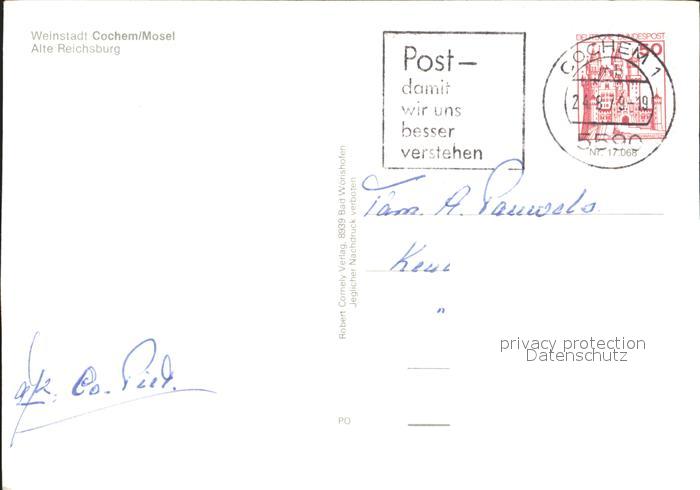 Weinstadt Cochem/Mosel
Alte Reichsburg
Post-
damit
wir uns
besser
verstehen
DEUTSCHE BUNDESPOST
50
COCHEM 1
5590
Nr. 17.068
Robert Cornely Verlag, 8939 Bad Wörishofen
Jeglicher Nachdruck verboten
Fam. A. Pauwels
"
privacy protection
Datenschutz
PO